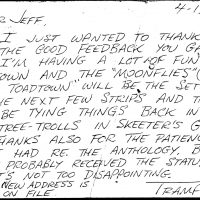 4-1
JEFF,
I JUST WANTED TO THANK
THE GOOD FEEDBACK YOU GA
I'M HAVING A LOT OF FUN
OWN AND THE "MOONFLIES"
TOADTOWN" WILL BE THE SET
HE NEXT FEW STRIPS AND T
BE TYING THINGS BACK IN
TREE-TROLLS IN SKEETER'S G
THANKS ALSO FOR THE PATIEN
HAD RE. THE ANTHOLOGY. B
PROBABLY RECEIVED THE STATUS
T'S NOT TOO DISAPPOINTING.
NEW ADDRESS IS
ON FILE.